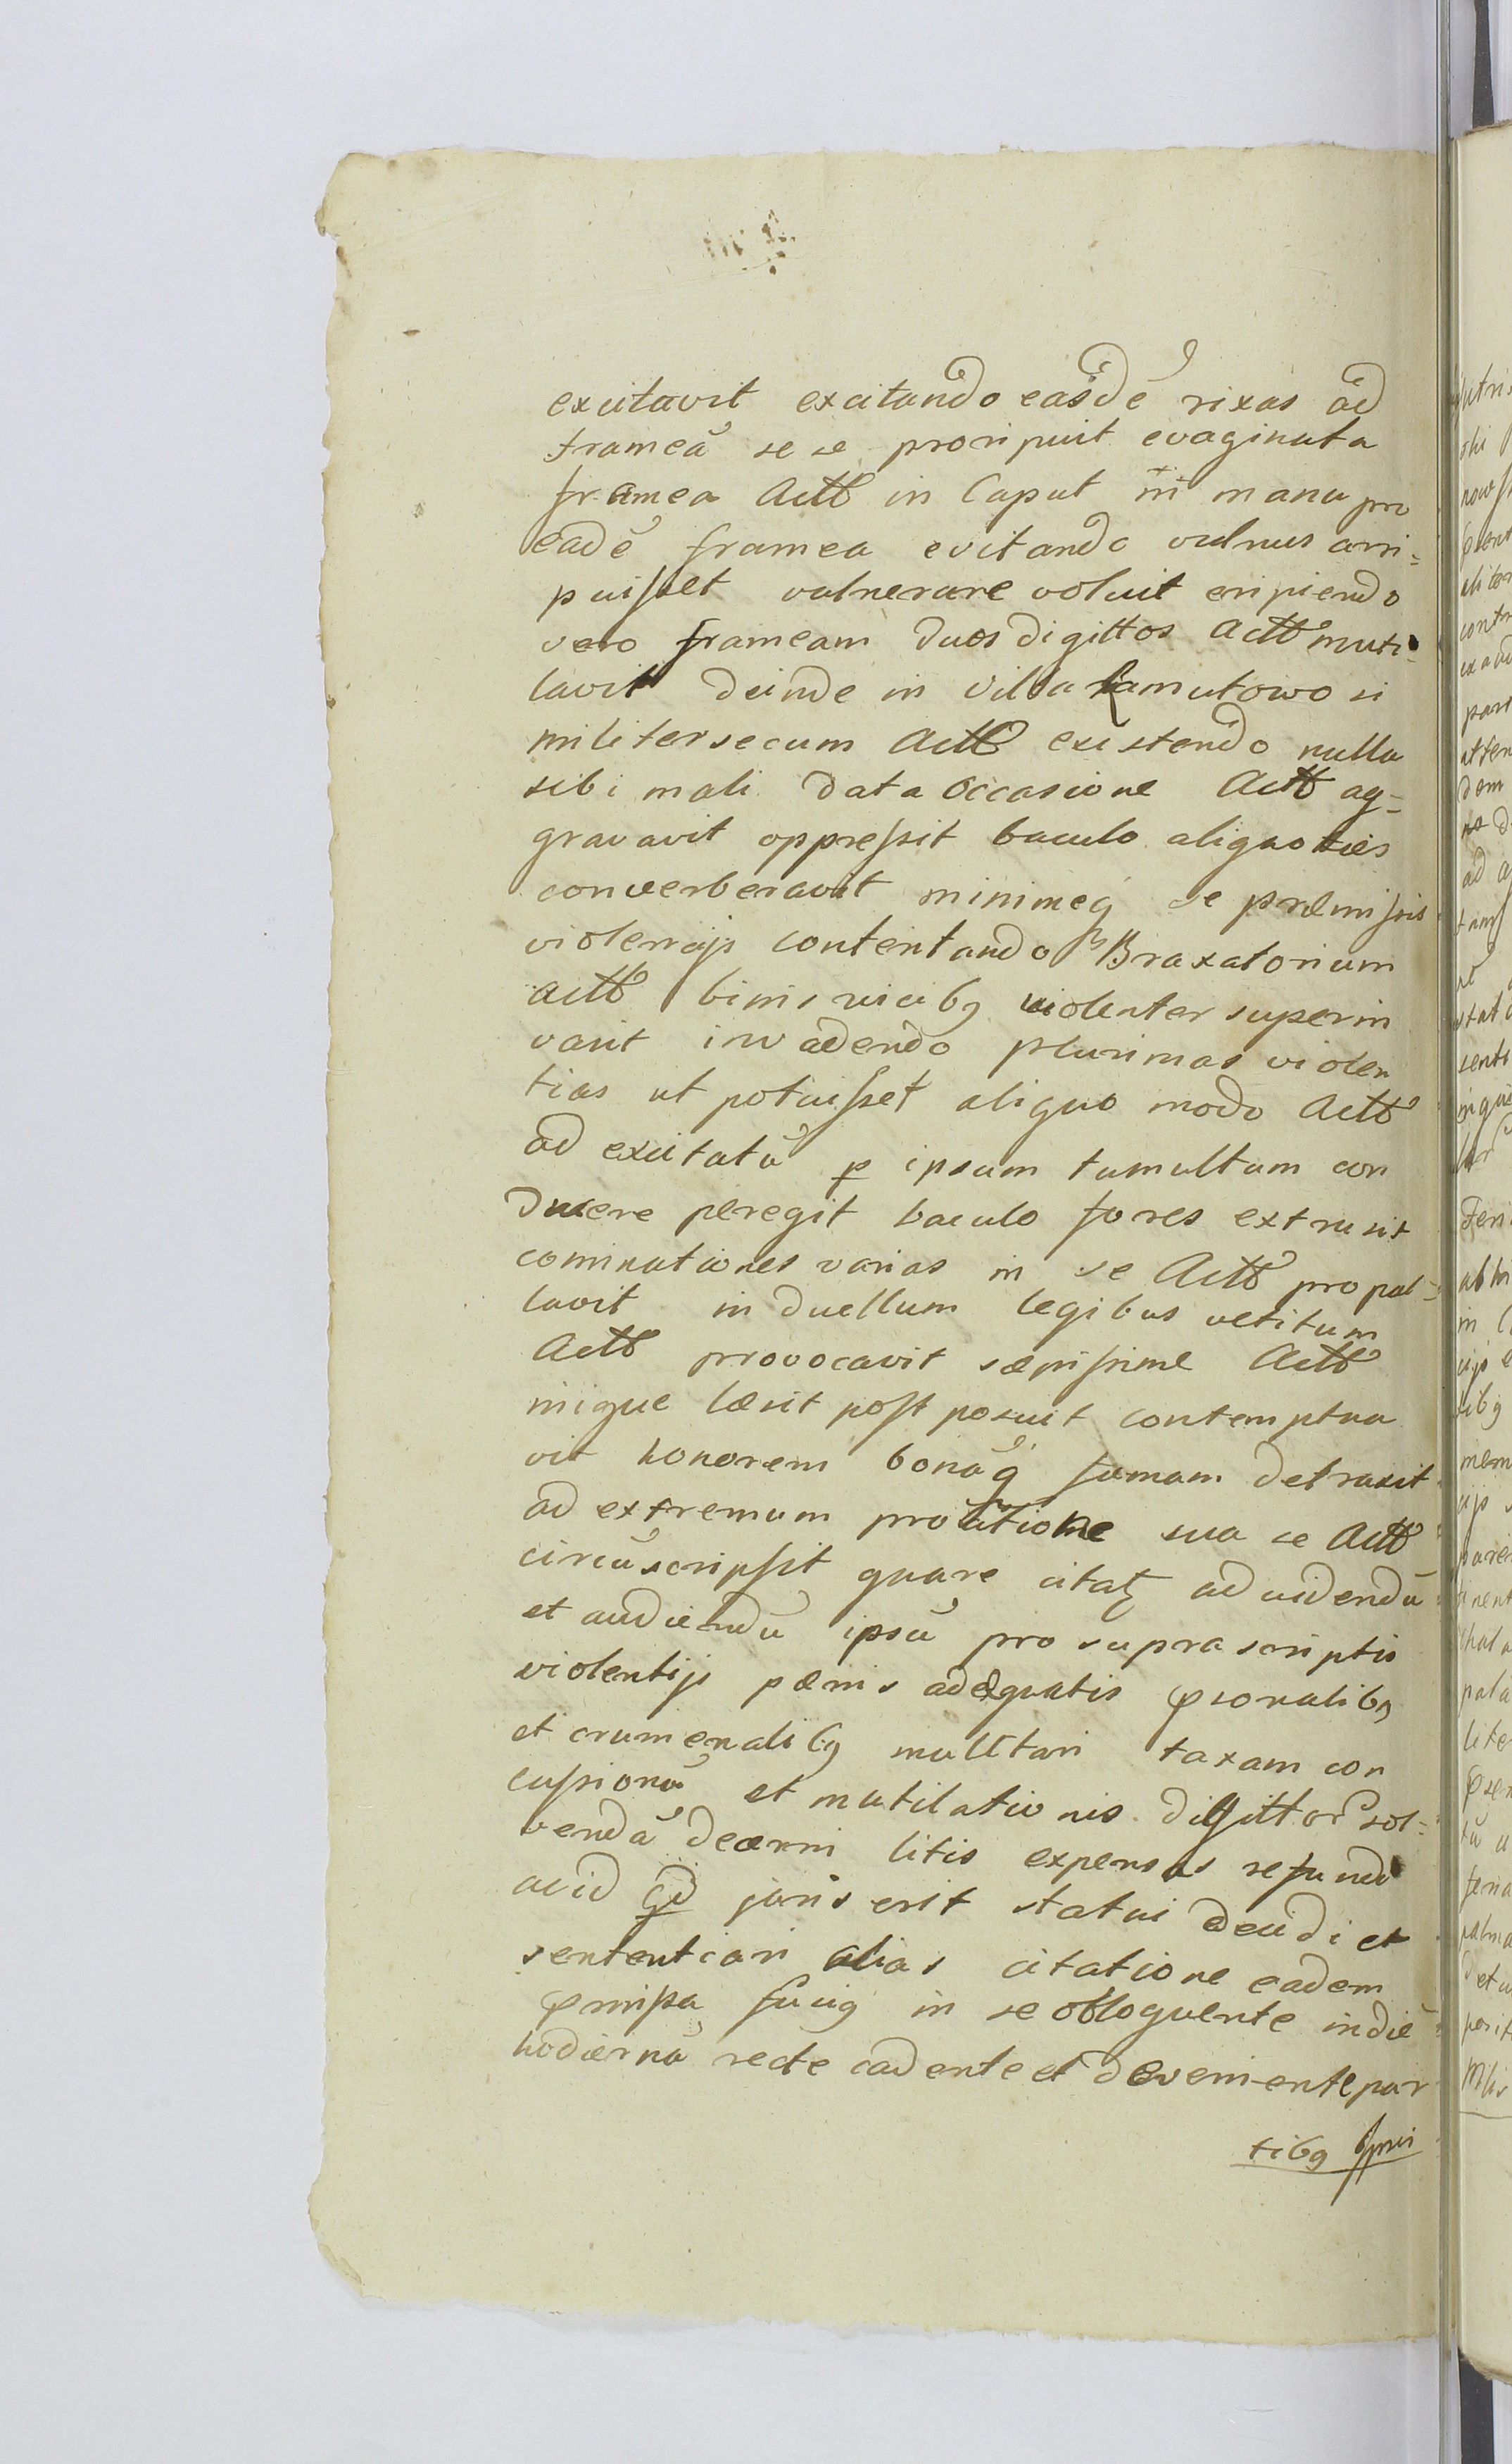 excitavit excitando easdē rixas ad
frameā se se proripuit evaginata
framea Actō in Caput ni manu pro
eadē framea evitando vulnus arri=
puiſset vulnerare voluit eripiendo
vero frameam duos digittos Actō muti
lavit deinde in Villa Ramutowo si
militer secum Actō existendo nulla
sibi mali data occasione Actō ag=
gravavit oppreſsit baculo aliquoties
converberavit minimeq se præmiſsis
violencijs contentando Braxatorium
Actō binis vicibq violenter superin
vasit invadendo plurimas violen
tias ut potuiſset aliquo modo Actō
ad excitatū p ipsum tumultum con
ducere peregit baculo fores extrusit
cominationes varias in se Actō propal=
lavit in duellum legibus vetitum
Actō provocavit sæpiſsime Actō
inique læsit poſt posuit contemptua
vit honorem bonāq famam detraxit
ad extremum prolatione sua se Actō
circūscripſit quare citatꝫ ad videndū
et audiendū ipsū pro suprascriptis
violentijs pænis adæquatis psonalibq
et crumenalibq mulltari taxam con
cuſsionū et mutilationis digittor sol=
vendā decerni litis expensas refundi
ac id qd juris erit statui decidi et
sententiari alias citatione eadem
pmiſsa in se obloquente in diē
hodiernā recte cadente et deveniente par
tibq